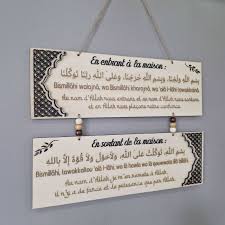 En entrant à la maison :
بِسْمِ اللَّهِ وَلَجْنَا، وَبِسْمِ اللَّهِ خَرَجْنَا، وَعَلَى اللَّهِ رَبِّنَا تَوَكَّلْنَا
Bismillâhi walajnâ, wa Bismillâhi kharajnâ, wa 'alâ Llâhi
Au nom d'Allah nous entrons, au nom d'Allah nous sortons
et en Allah nous plaçons notre confiance
En sortant de la maison :
بِسْمِ اللَّهِ، تَوَكَّلْتُ عَلَى اللَّهِ، وَلَا حَوْلَ وَلَا قُوَّةَ إِلَّا بِاللَّهِ
Bismillâhi, tawakkaltou 'alâ l-lâhi wa lâ hawla wa lâ quwwata illâ billâhi
Au nom d'Allah, je m'en remets à Allah,
il n'y a de force et de puissance que par Allah